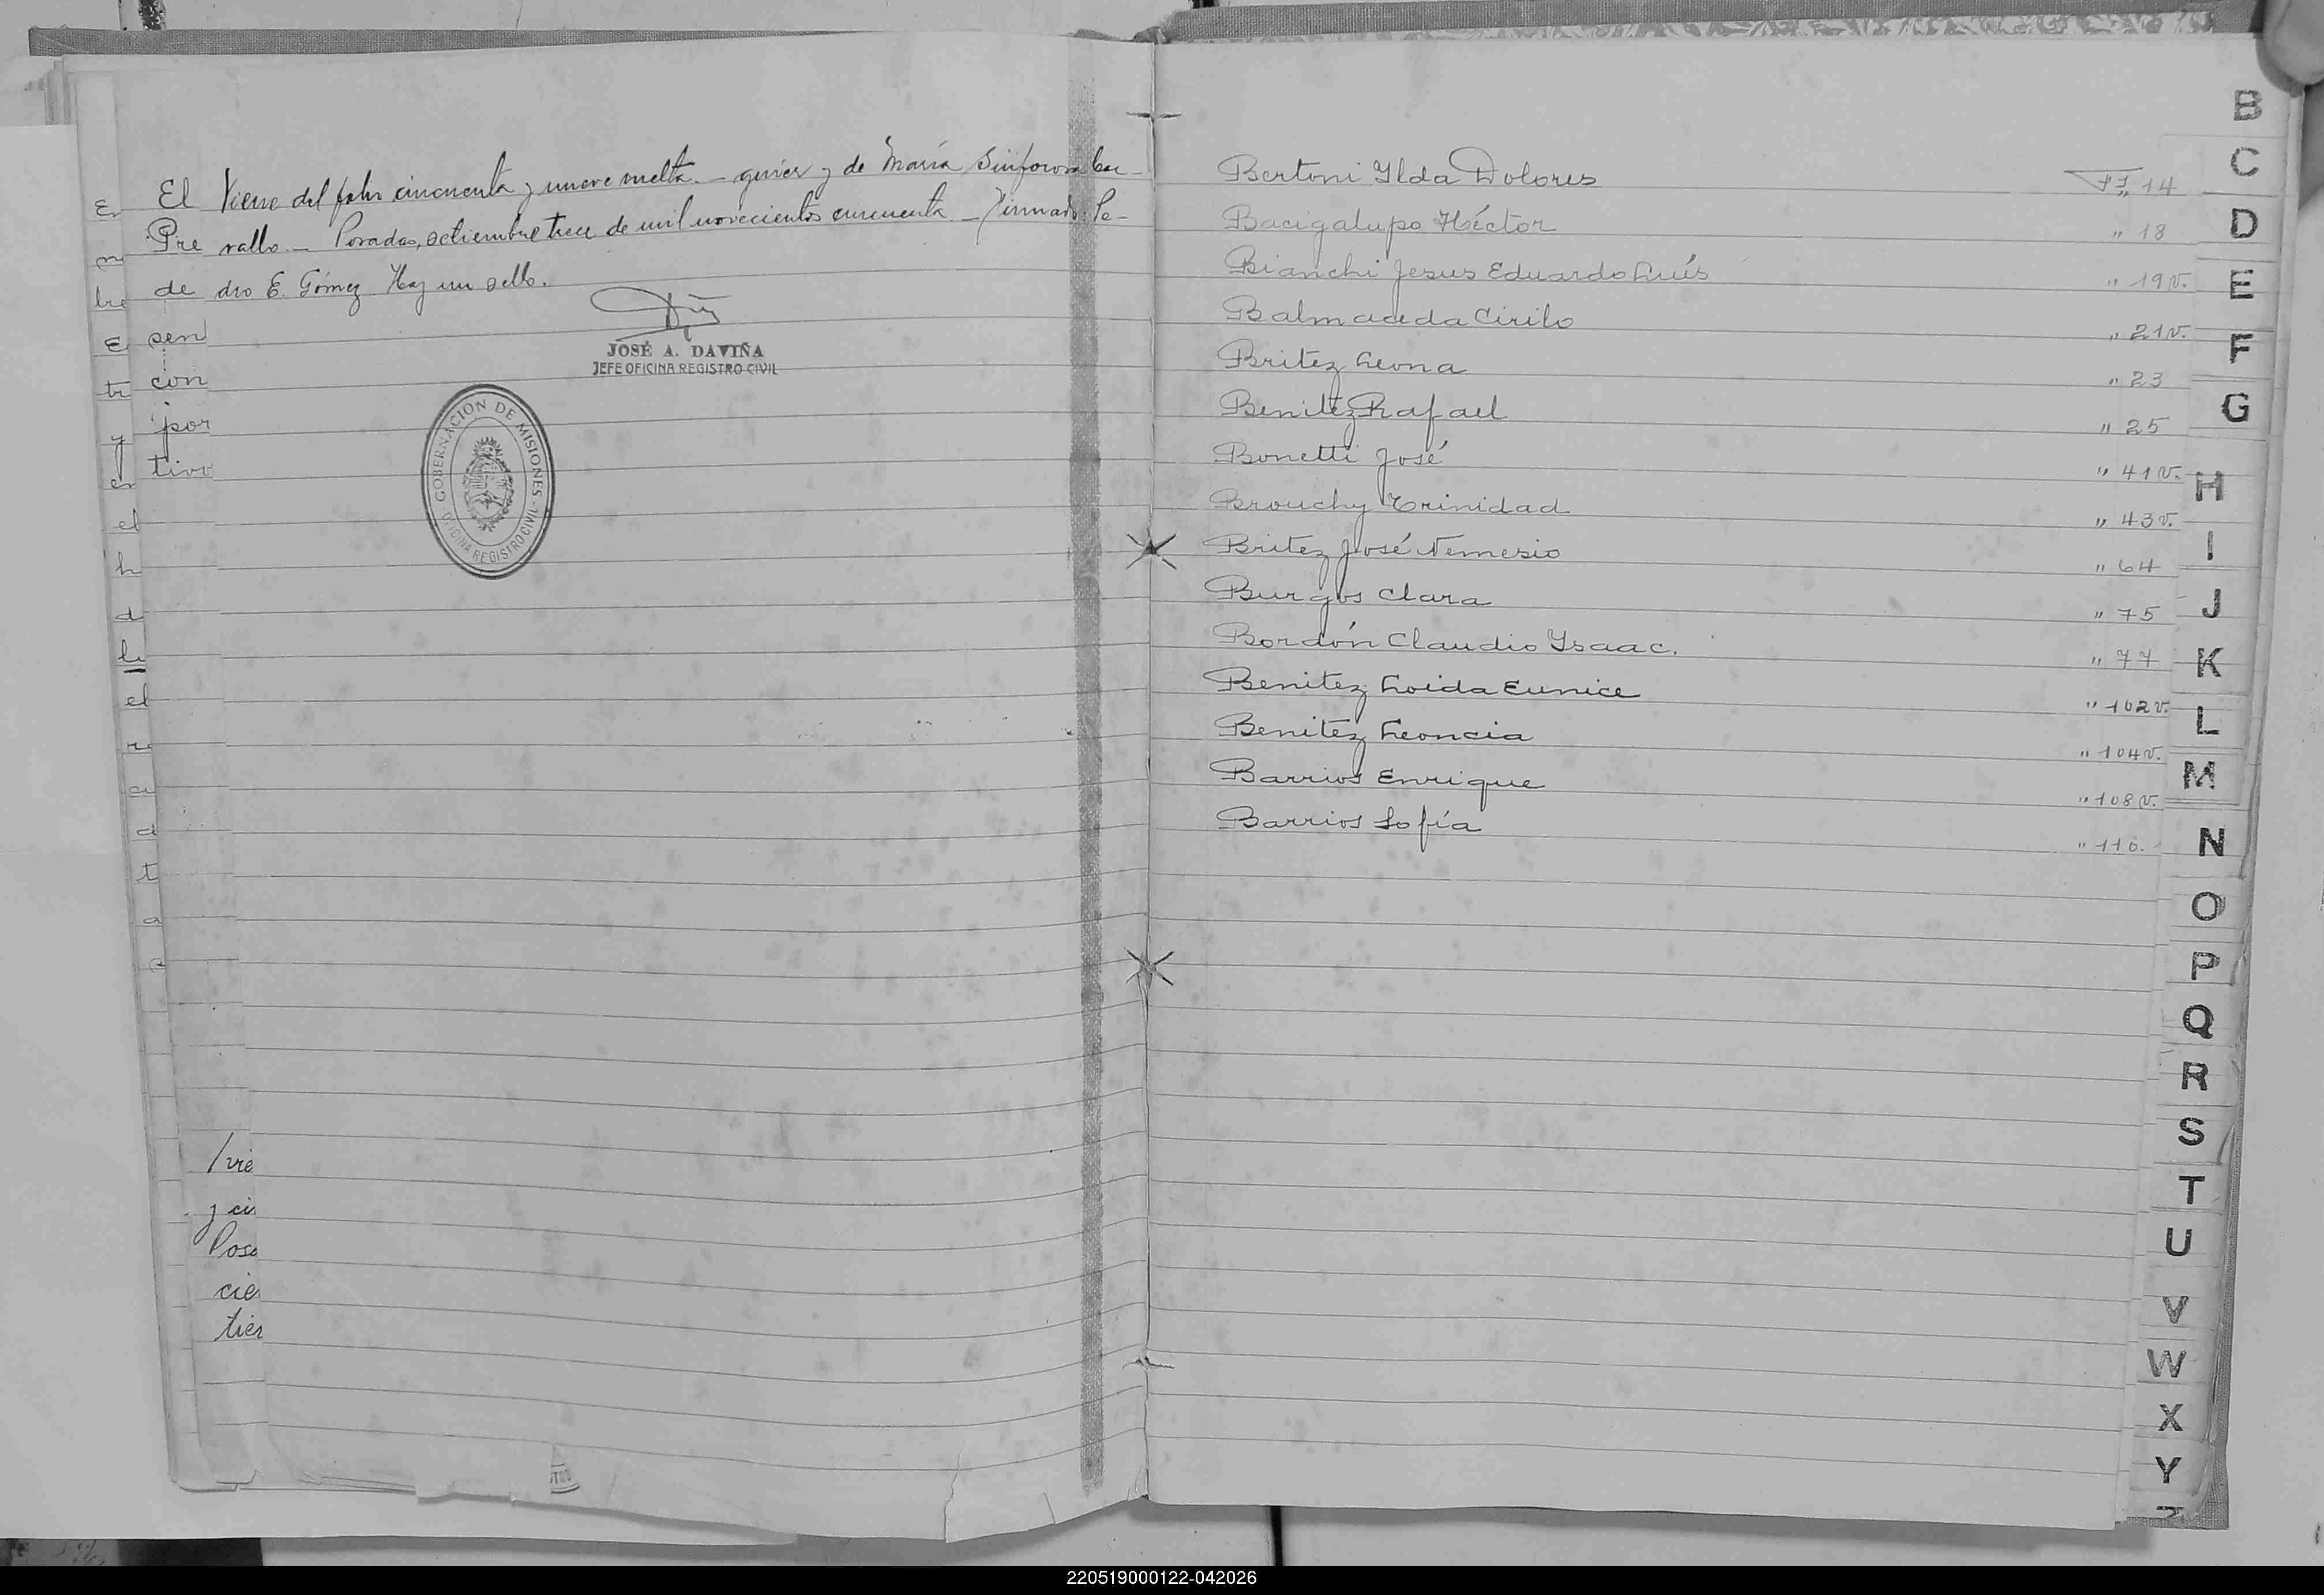 El Viene del folio cincuenta y nueve vuelta.- guier y de María Sinforosa Ca-
Pre vallo.- Posadas, setiembre trece de mil novecientos cincuenta.- Firmado: Pe-
de dro E. Gómez Hay un sello.
sen
con
por
tivo
JOSÉ A. DAVIÑA
JEFE OFICINA REGISTRO CIVIL
GOBERNACION DE MISIONES - OFICINA REGISTRO CIVIL -
/vie
y ci
Posa
cie
tier
Bertoni Ilda Dolores 14
Bacigalupo Héctor " 18
Bianchi Jesus Eduardo Luís " 19 v.
Balmaceda Cirilo " 21 v.
Britez Leona " 23
Benitez Rafael " 25
Bonetti José " 41 v.
Brouchy Trinidad " 43 v.
Britez José Nemesio " 64
Burgos Clara " 75
Bordón Claudio Ysaac. " 77
Benitez Loida Eunice " 102 v.
Benitez Leoncia " 104 v.
Barrios Enrique " 108 v.
Barrios Sofía " 110.
B
C
D
E
F
G
H
I
J
K
L
M
N
O
P
Q
R
S
T
U
V
W
X
Y
Z
220519000122-042026